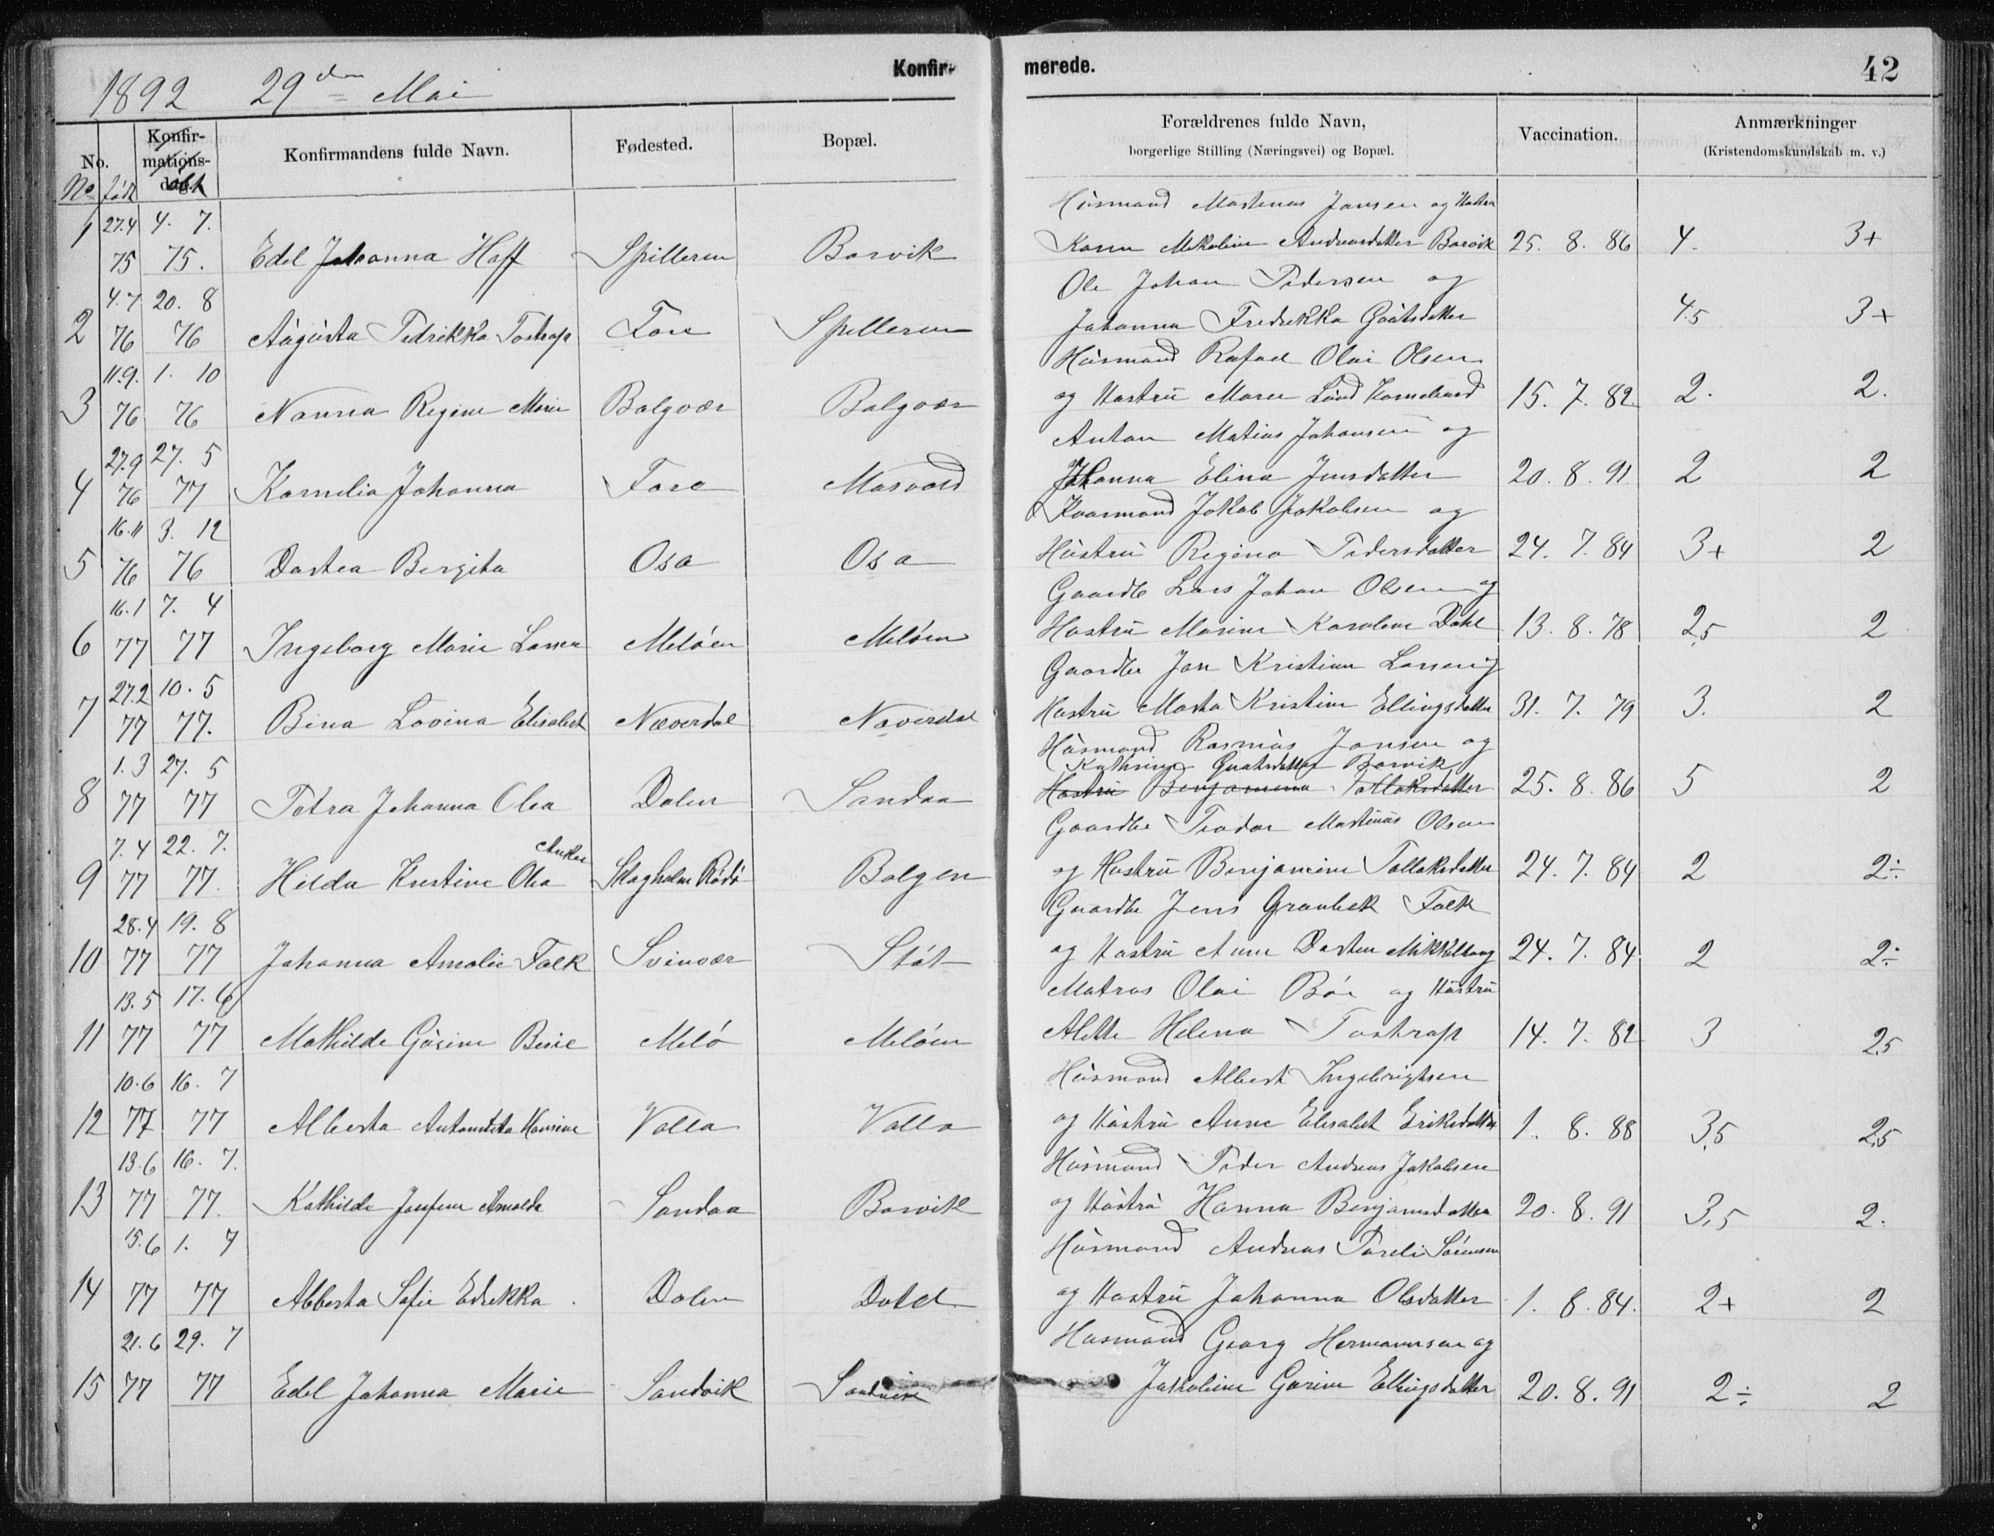 1892 29de Mai Konfirmerede. 42
No. Konfirmationsdag. Konfirmandens fulde Navn. Fødested. Bopæl. Forældrenes fulde Navn, Vaccination. Anmærkninger
borgerlige Stilling (Næringsvei) og Bopæl. (Kristendomskundskab m. v.)
No født døbt
27.4 4. 7. Husmand Martinus Jansen og Hustru
1 75 75. Edel Johanna Hoff Spilleren Barvik Karen Mekeline Andreasdatter Barvik 25. 8. 86 4. 3+
4.7 20. 8 Ole Johan Pedersen og
2 76 76 Augusta Petrikka Tostrup Fore Spilleren Johanna Fredrekka Goatsdatter 4.5 3+
11.9. 1. 10 Husmand Rafael Olai Olsen
3 76 76 Nanna Regine Marie Bolgvær Bolgvær og Hustru Maren Lund 15. 7. 82 2. 2.
27.9 27. 5 Anton Matias Johansen og
4 76 77 Kornelia Johanna Fore Mosvold Johanna Elina Jensdatter 20. 8. 91 2 2
16.11 3. 12 Kvarmand Jakob Jakobsen og
5 76 76 Dortea Bergita Osa Osa Hustru Regina Pedersdatter 24. 7. 84 3+ 2
16.1 7. 4 Gaardbr Lars Johan Olsen og
6 77 77 Ingeborg Marie Larsen Meløen Meløen Hustru Marine Karoline Dahl 13. 8. 78 2,5 2
27.2 10. 5 Gaardbr Jon Kristian Larsen og
7 77 77. Bina Lovina Elisabet Næverdal Næverdal Hustru Marta Kristine Ellingsdatter 31. 7. 79 3. 2
1. 3 27. 5 Husmand Rasmus Jansen og
Kathrine Goatsdatter Barvik
8 77 77 Petra Johanna Olea Dalen Sandaa Hustru Benjamina Tollaksdatter 25. 8. 86 5 2
7. 4 22. 7. Gaardbr Peder Martinus Olsen
Anker
9 77 77. Hilda Kristine Olea Skogholm Rødø Bolgen og Hustru Benjamine Tollaksdatter 24. 7. 84 2 2÷
28.4 19. 8 Gaardbr Jens Grønbek Falk
10 77 77 Johanna Amalie Falk Svinvær Støt og Hustru Anne Dortea Mikkelborg 24. 7. 84. 2 2÷
13.5 17. 6 Matros Olai Bøe og Hustru
11 77 77 Mathilde Gusine Berie Melø Meløen Alette Helena Tostrup 14. 7. 82 3 2,5
10.6 16. 7 Husmand Albert Ingebrigtsen
12 77 77 Alberta Antonetta Hansine Valla Valla og Hustru Anne Elisabet Eriksdatter 1. 8. 88 3,5 2,5
13.6 16. 7. Husmand Peder Andreas Jakobsen
13 77 77. Kathilde Josefine Amalde Sandaa Barvik og Hustru Hanna Benjaminsdatter 20. 8. 91 3,5 2.
15.6 1. 7 Husmand Andreas Pareli Sørensen
14 77 77 Alberta Sofie Edrekka Dalen Dalen og Hustru Johanna Olsdatter 1. 8. 84. 2+ 2
21.6 29. 7 Husmand Georg Hermannsen og
15 77 77 Edel Johanna Marie Sandvik Sandvik Jakobine Gurine Ellingsdatter 20. 8. 91 2÷ 2